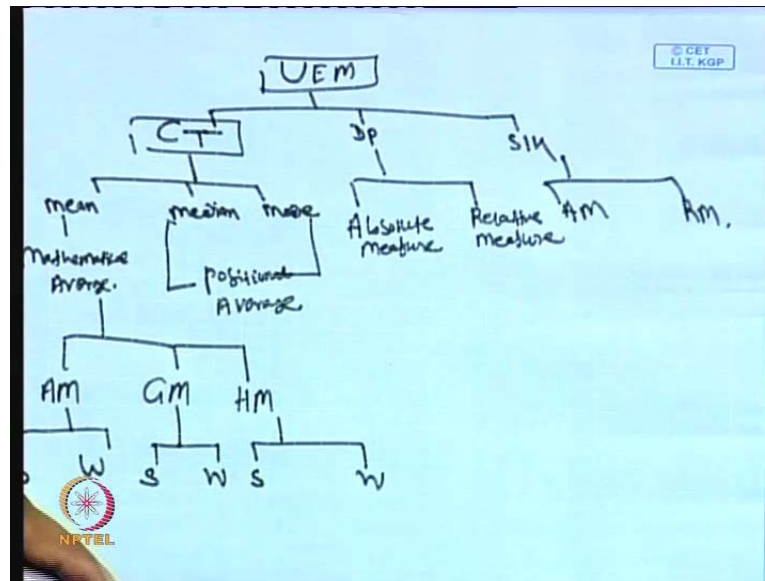 UEM
© CET
I.I.T. KGP
CT
Dp
S/K
mean
median
mode
Absolute
measure
Relative
measure
AM
RM.
Mathematical
Average.
Positional
Average
AM
GM
HM
W
S
W
S
W
NPTEL